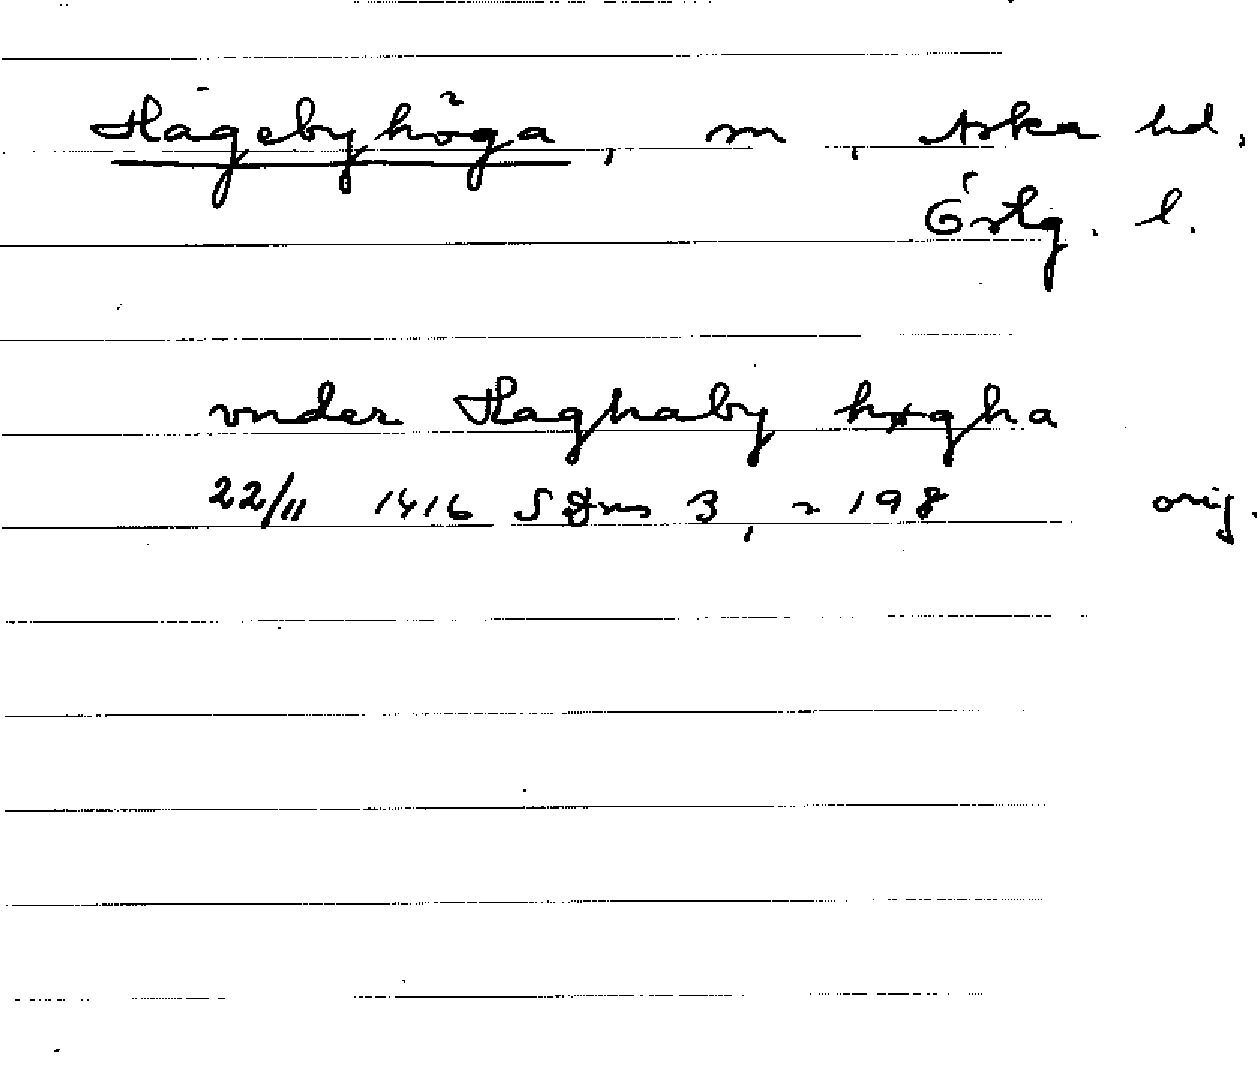 Hagebyhöga, sn, Aska hd,
Östg. l.
vnder Haghaby høgha
22/11 1416 SDns 3, s 198 orig.